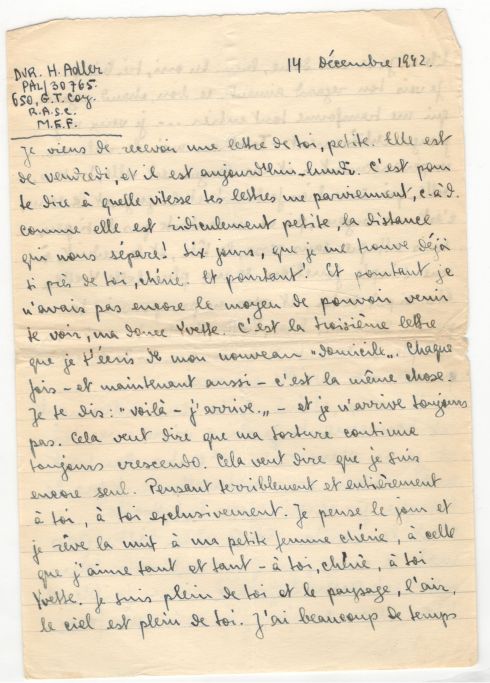 DVR. H. Adler
PAL/30765.
650, G.T. Coy.
R.A.S.C.
M.E.F.
14 Décembre 1942.
Je viens de recevoir une lettre de toi, petite. Elle est
de vendredi, et il est aujourd'hui lundi. C'est pour
te dire à quelle vitesse tes lettres me parviennent, c.à.d.
comme elle est ridiculement petite, la distance
qui nous sépare! Six jours, que je me trouve déjà
si près de toi, chérie. Et pourtant! Et pourtant je
n'avais pas encore le moyen de pouvoir venir
te voir, ma douce Yvette. C'est la troisième lettre
que je t'écris de mon nouveau "domicile". Chaque
fois - et maintenant aussi - c'est la même chose.
Je te dis: "voilà - j'arrive." - et je n'arrive toujours
pas. Cela veut dire que ma torture continue
toujours crescendo. Cela veut dire que je suis
encore seul. Pensant terriblement et entièrement
à toi, à toi exclusivement. Je pense le jour et
je rêve la nuit à ma petite femme chérie, à celle
que j'aime tant et tant - à toi, chérie, à toi
Yvette. Je suis plein de toi et le paysage, l'air,
le ciel est plein de toi. J'ai beaucoup de temps